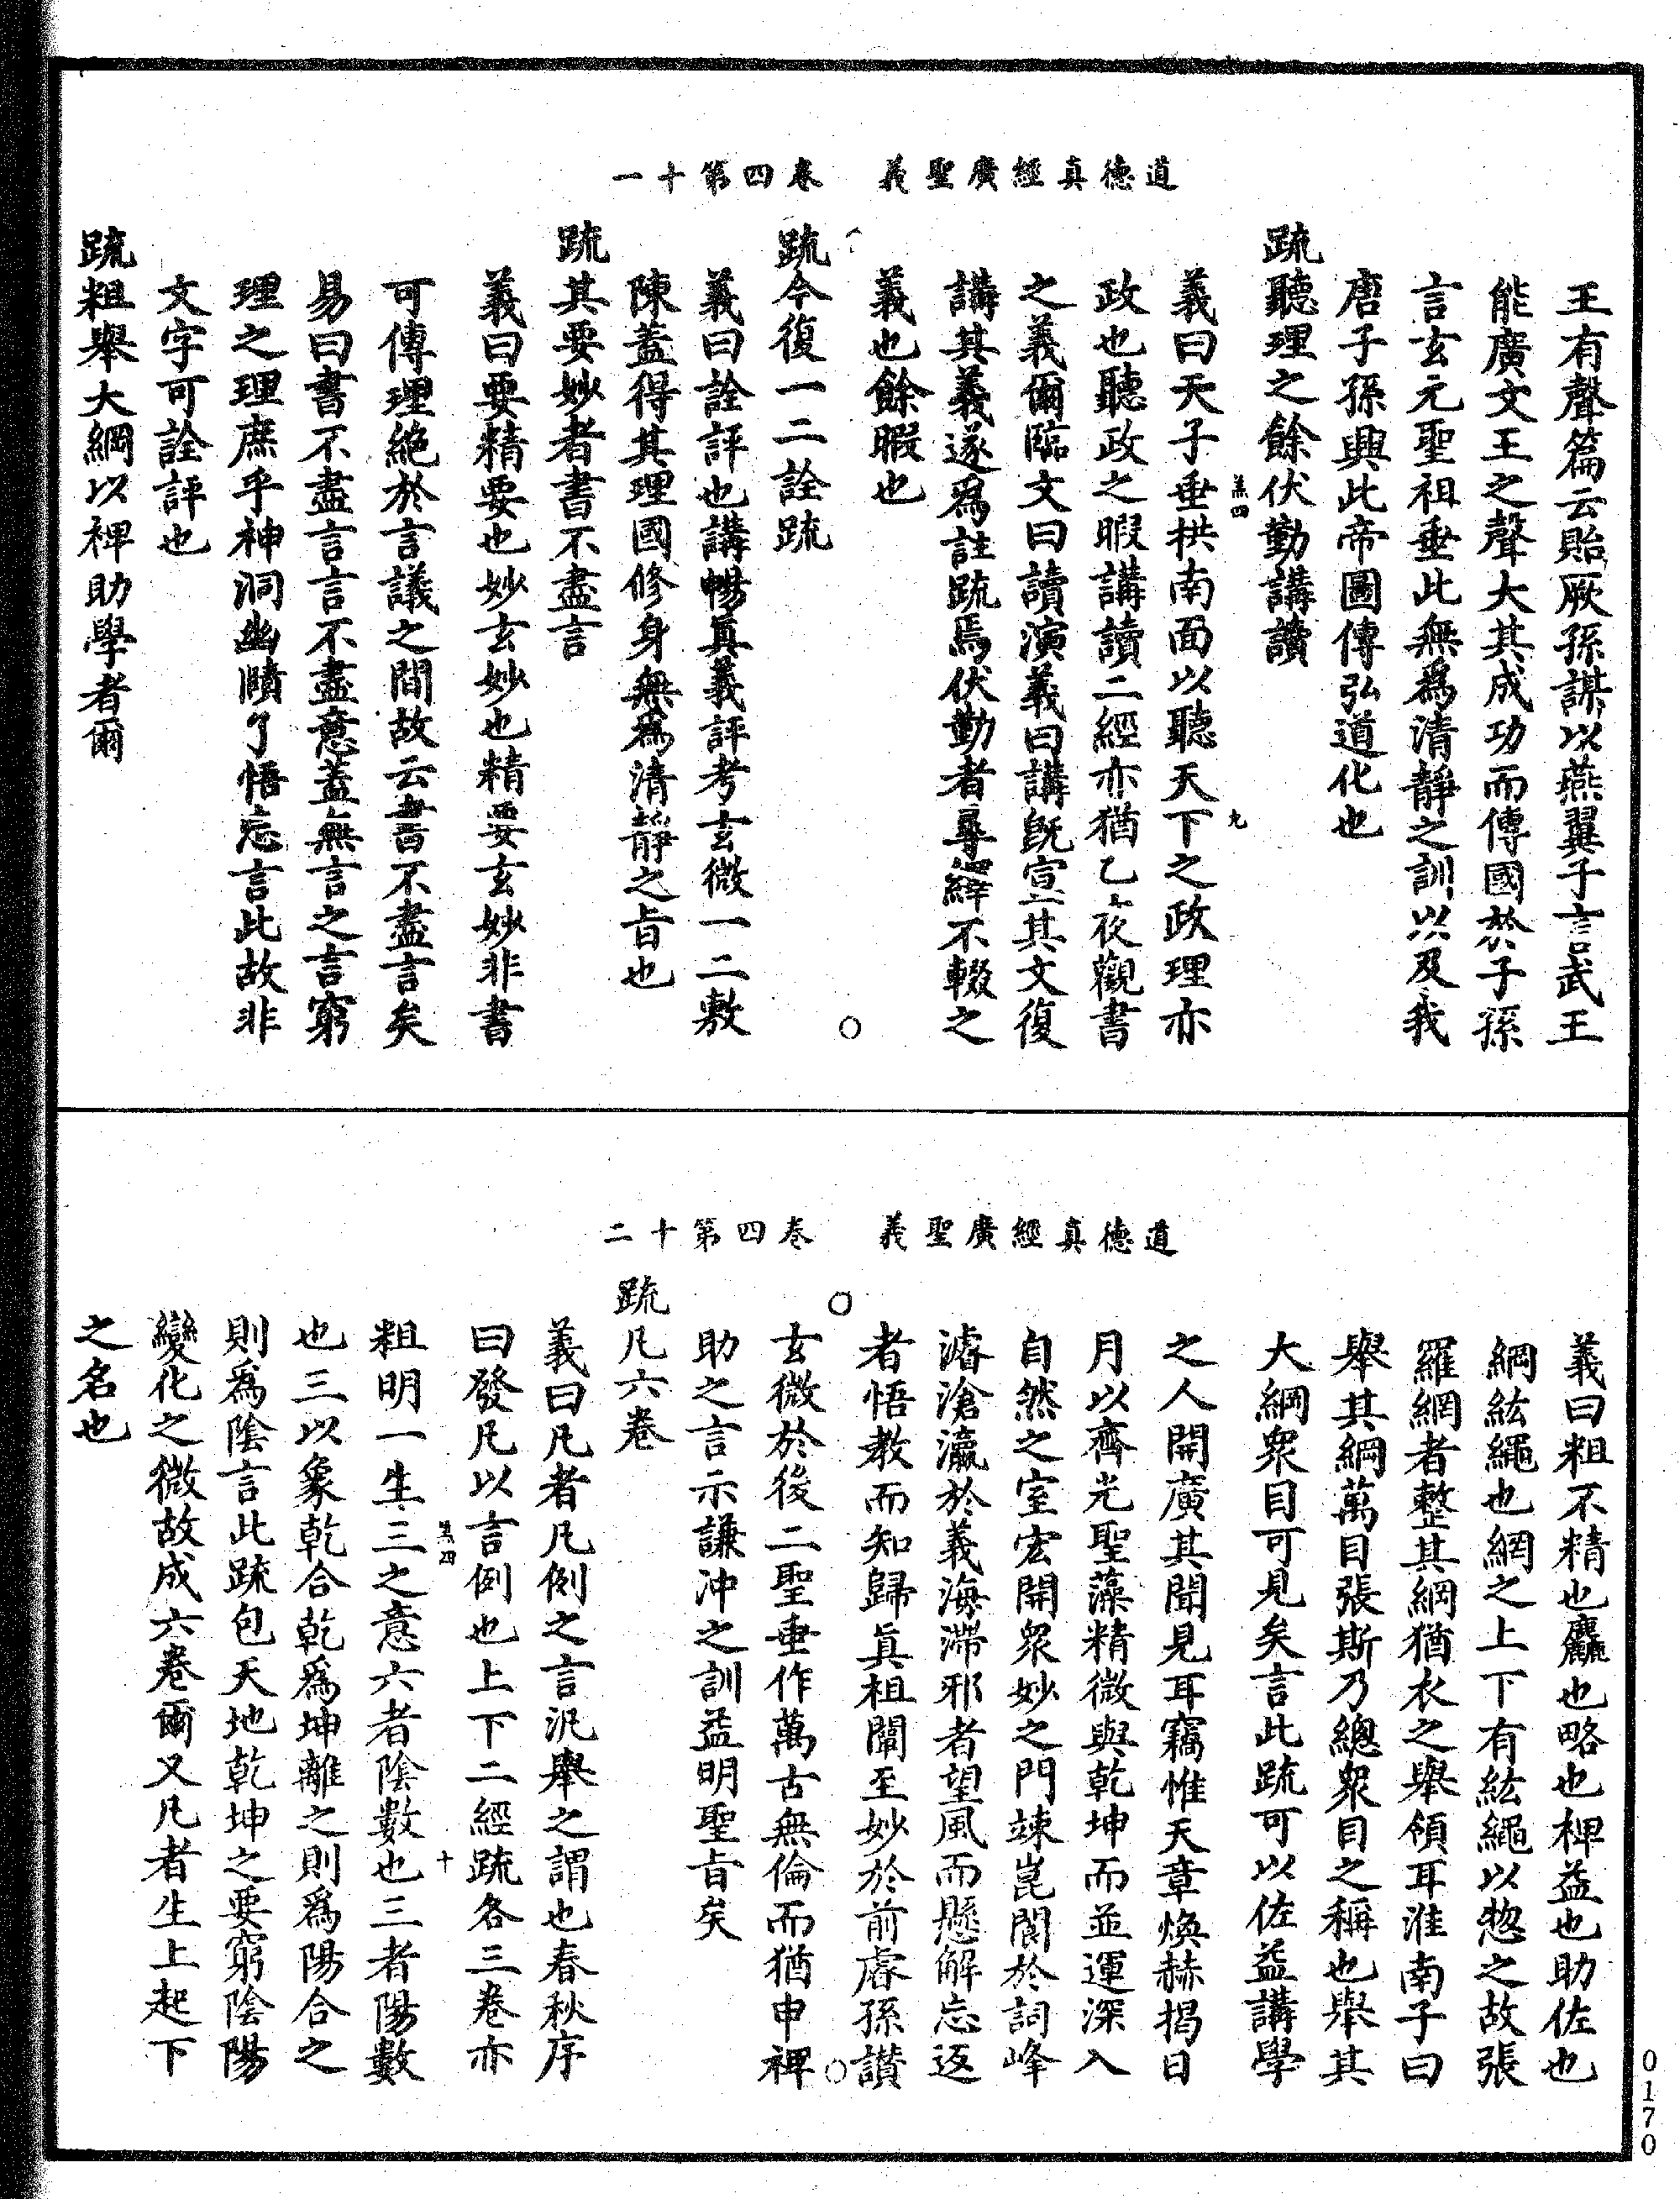 道德真經廣聖義　卷四第十一
王有聲篇云貽厥孫謀以燕翼子言武王
能廣文王之聲大其成功而傳國於子孫
言玄元聖祖垂此無為清靜之訓以及我
唐子孫興此帝圖傳弘道化也
疏聽理之餘伏勤講讀
義曰天子垂拱南面以聽天下之政理亦
政也聽政之暇講讀二經亦猶乙夜觀書
之義爾臨文曰讀演義曰講既宣其文復
講其義遂為註疏焉伏勤者尋繹不輟之
義也餘暇也
疏今復一二詮疏
義曰詮評也講暢真義評考玄微一二敷
陳蓋得其理國修身無為清靜之旨也
疏其要妙者書不盡言
義曰要精要也妙玄妙也精要玄妙非書
可傳理絕於言議之間故云書不盡言矣
易曰書不盡言言不盡意蓋無言之言窮
理之理庶乎神洞幽賾了悟忘言此故非
文字可詮評也
疏粗舉大綱以裨助學者爾
道德真經廣聖義　卷四第十二
義曰粗不精也麤也略也裨益也助佐也
綱紘繩也網之上下有紘繩以惣之故張
羅網者整其綱猶衣之舉領耳淮南子曰
舉其綱萬目張斯乃總眾目之稱也舉其
大綱眾目可見矣言此疏可以佐益講學
之人開廣其聞見耳竊惟天章煥赫揭日
月以齊光聖藻精微與乾坤而並運深入
自然之室宏開眾妙之門竦崑閬於詞峰
濬滄瀛於義海滯邪者望風而懸解忘返
者悟教而知歸真祖闡至妙於前睿孫讚
玄微於後二聖垂作萬古無倫而猶申裨
助之言示謙沖之訓益明聖旨矣
疏凡六卷
義曰凡者凡例之言汎舉之謂也春秋序
曰發凡以言例也上下二經疏各三卷亦
粗明一生三之意六者陰數也三者陽數
也三以象乾合乾為坤離之則為陽合之
則為陰言此疏包天地乾坤之要窮陰陽
變化之微故成六卷爾又凡者生上起下
之名也
九
十
0170